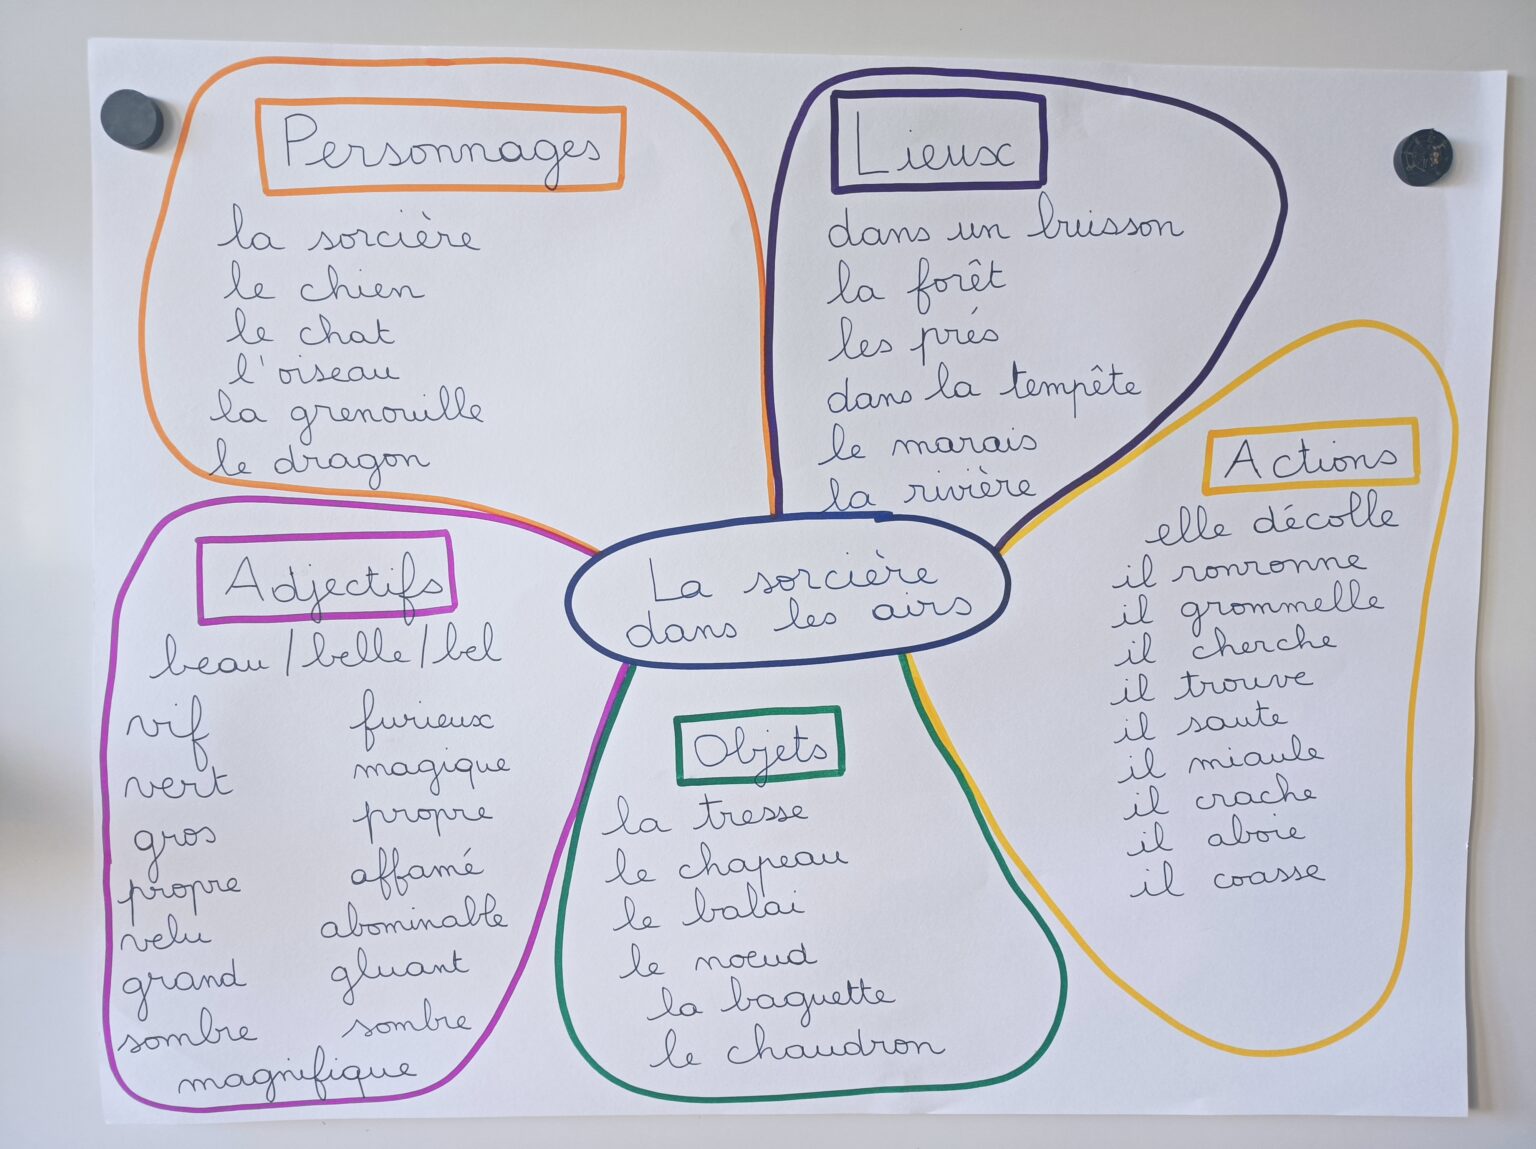 Personnages
la sorcière
le chien
le chat
l'oiseau
la grenouille
le dragon
Lieux
dans un buisson
la forêt
les prés
dans la tempête
le marais
la rivière
Actions
elle décolle
il ronronne
il grommelle
il cherche
il trouve
il saute
il miaule
il crache
il aboie
il coasse
La sorcière
dans les airs
Adjectifs
beau/belle/bel
vif furieux
vert magique
gros propre
propre affamé
velu abominable
grand gluant
sombre sombre
magnifique
Objets
la tresse
le chapeau
le balai
le nœud
la baguette
le chaudron